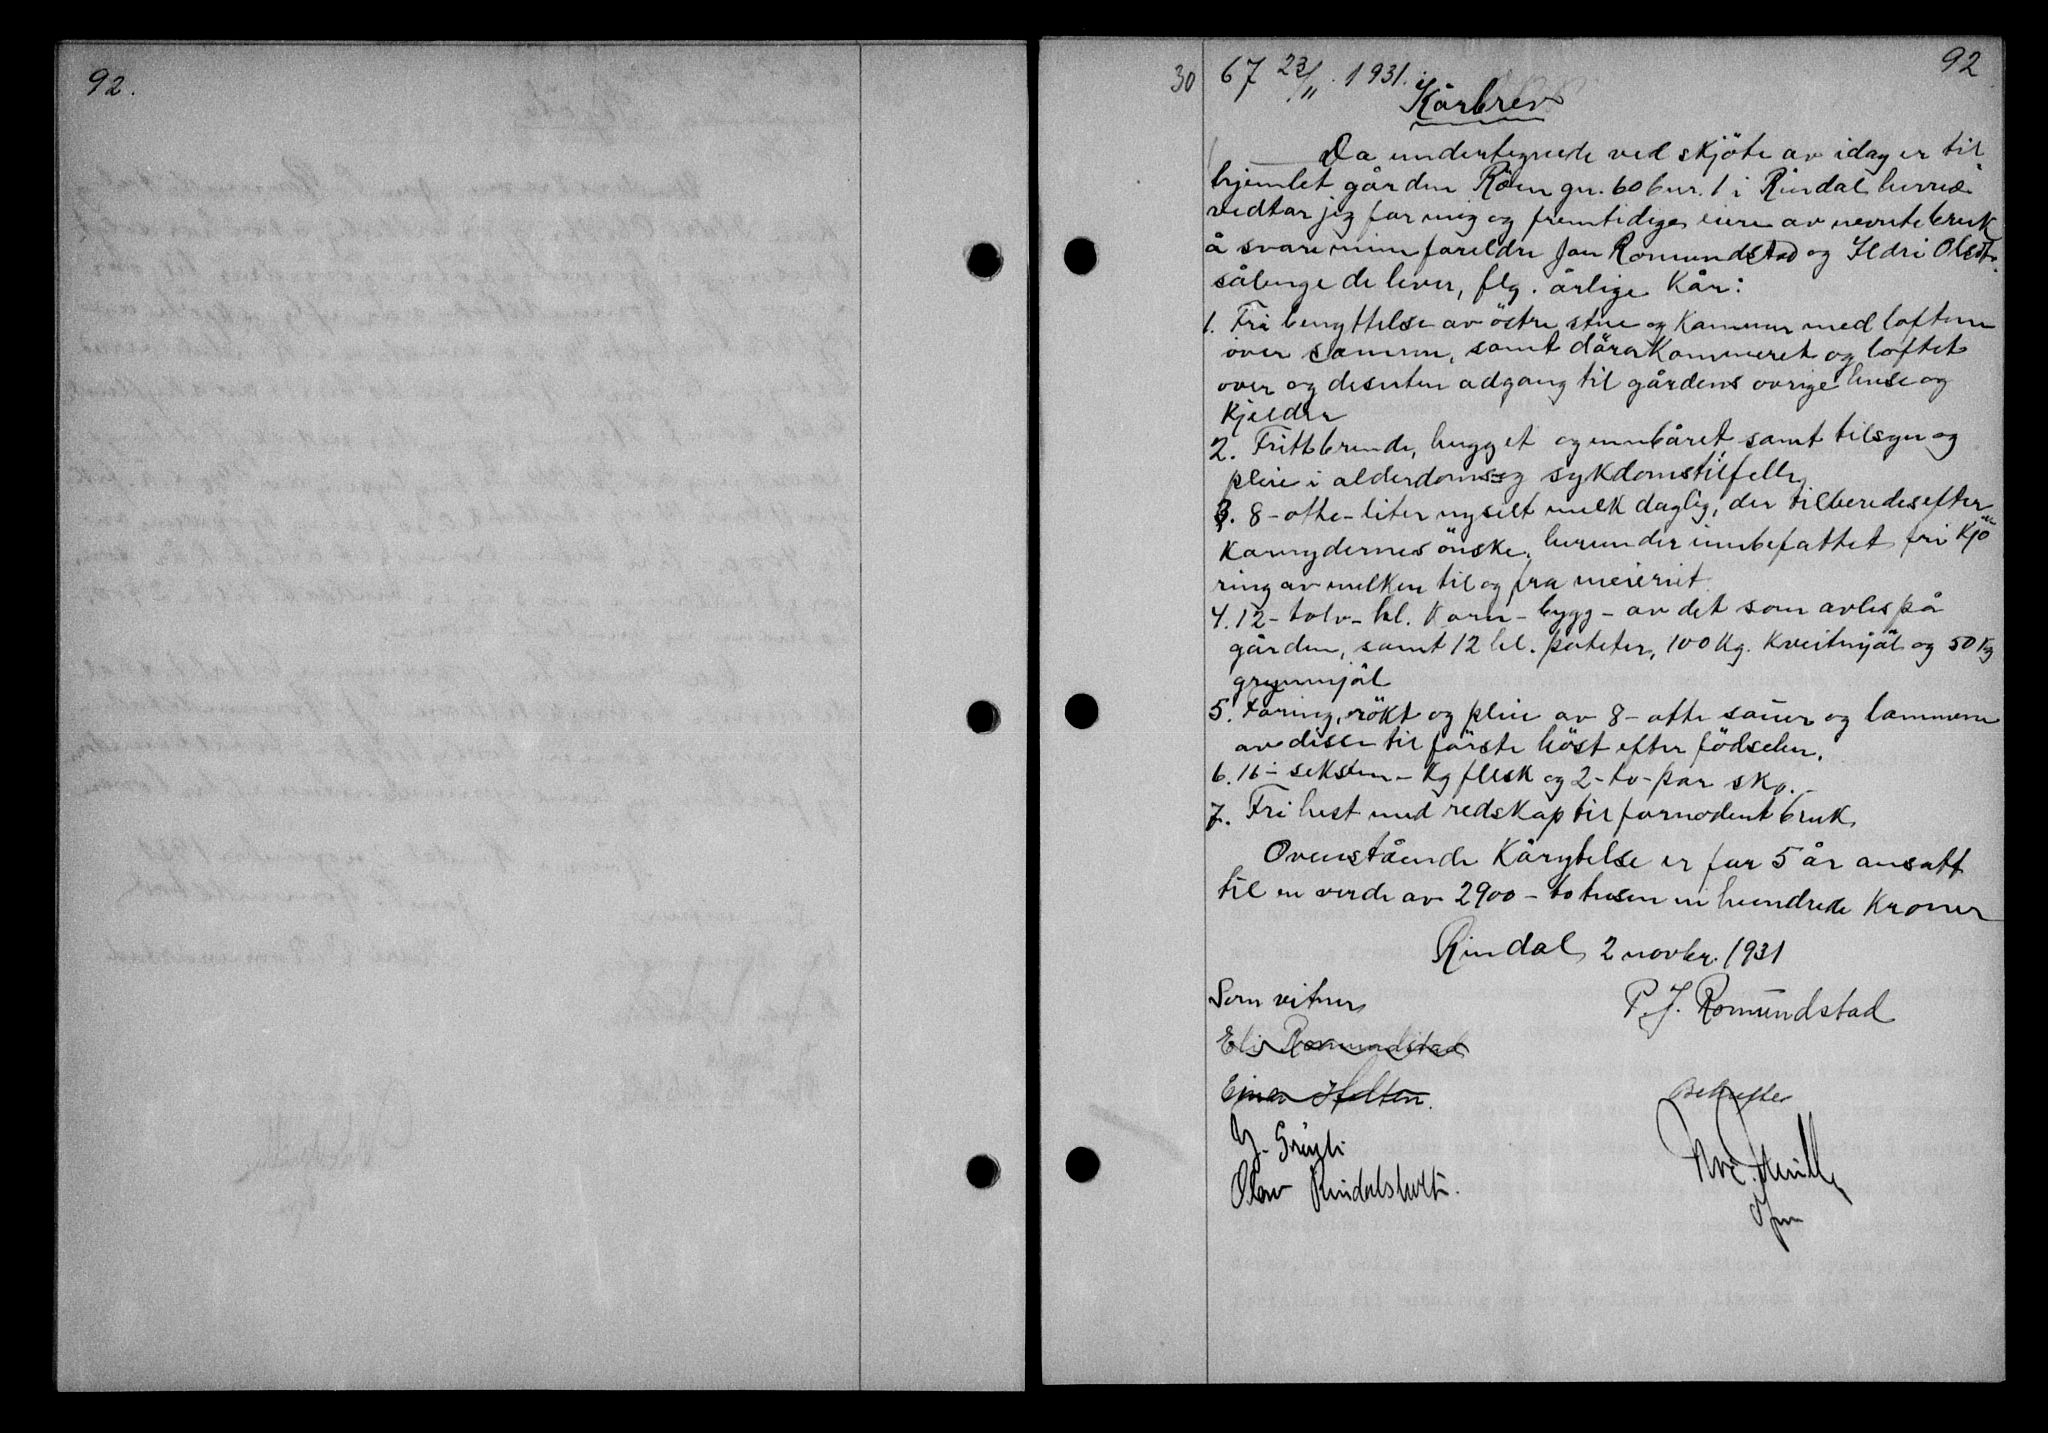 92.
92
30 67 23/11. 1931.
Kårbrev
Da undertegnede ved skjöte av idag er til-
hjemlet gården Röen gn. 60 bnr. 1 i Rindal herred
vedtar jeg for mig og fremtidige eiere av nevnte bruk
å svare mine foreldre Jon Romundstad og Ildri Olsdtr.
sålenge de lever, flg. årlige kår:
1. Fri benyttelse av östre stue og kammer med loftene
over samme, samt kammeret og loftet
over og desuten adgang til gårdens ovrige huse og
kjelder
2. Fritt brende, hugget og innbåret samt tilsyn og
pleie i alderdoms og sykdomstilfelle,
3. 8 - otte - liter nysilt melk daglig, der tilberedes efter
kårnydernes önske, herunder innbefattet fri kjö-
ring av melken til og fra meieriet.
4. 12 - tolv - hl. korn - bygg - av det som avles på
gården, samt 12 hl. poteter, 100 kg. kveitmjöl og 50 kg
grynmjöl
5. Foring, rökt og pleie av 8 - otte sauer og lammene
av disse til förste höst efter födselen.
6. 16 - seksten - kg flesk og 2 - to - par sko.
7. Fri hest med redskap til fornodent bruk.
Ovenstående kårytelse er for 5 år ansatt
til en verde av 2900 - to tusen ni hundrede kroner
Rindal 2 novbr. 1931
Som vitner
P. J. Romundstad
Eli Romundstad
Einar Holten.
Bekreftes
Olav Rindalsholt.